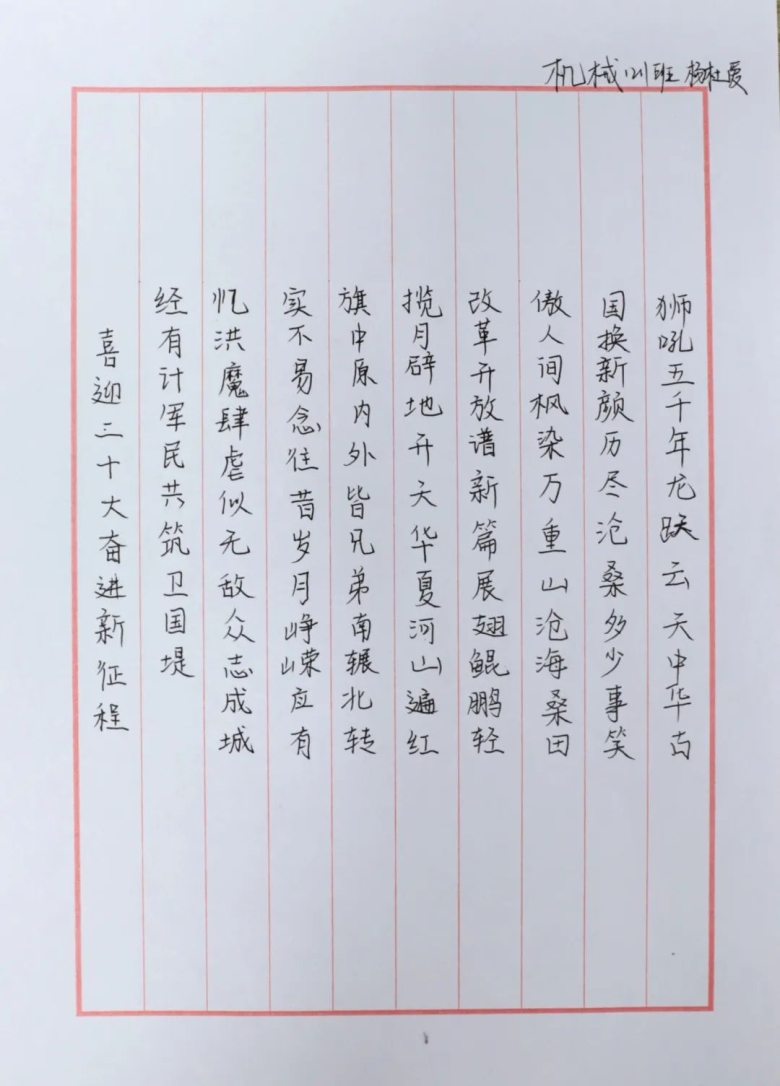 机械121班 杨杜爱
狮吼五千年龙跃云天中华古
国换新颜历尽沧桑多少事笑
傲人间枫染万重山沧海桑田
改革开放谱新篇展翅鲲鹏轻
揽月辟地开天华夏河山遍红
旗中原内外皆兄弟南辗北转
实不易念往昔岁月峥嵘应有
忆洪魔肆虐似无敌众志成城
经有计军民共筑卫国堤
喜迎二十大奋进新征程